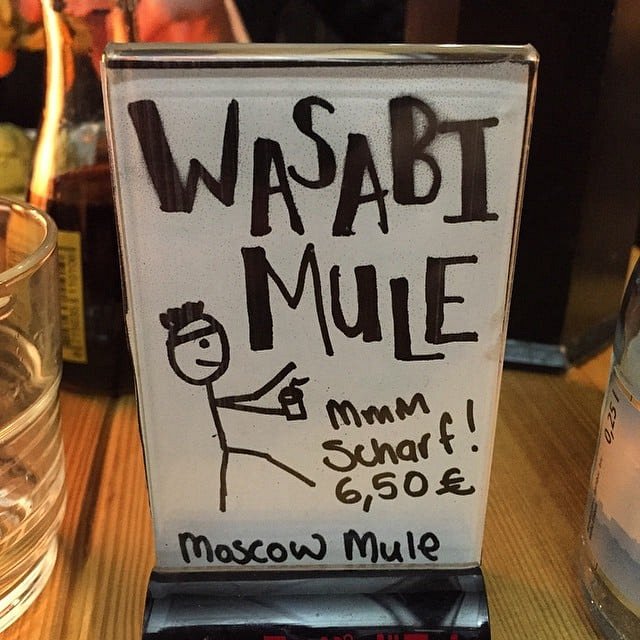 WASABI
MULE
mmm
Scharf!
6,50 €
Moscow Mule
0,25 l